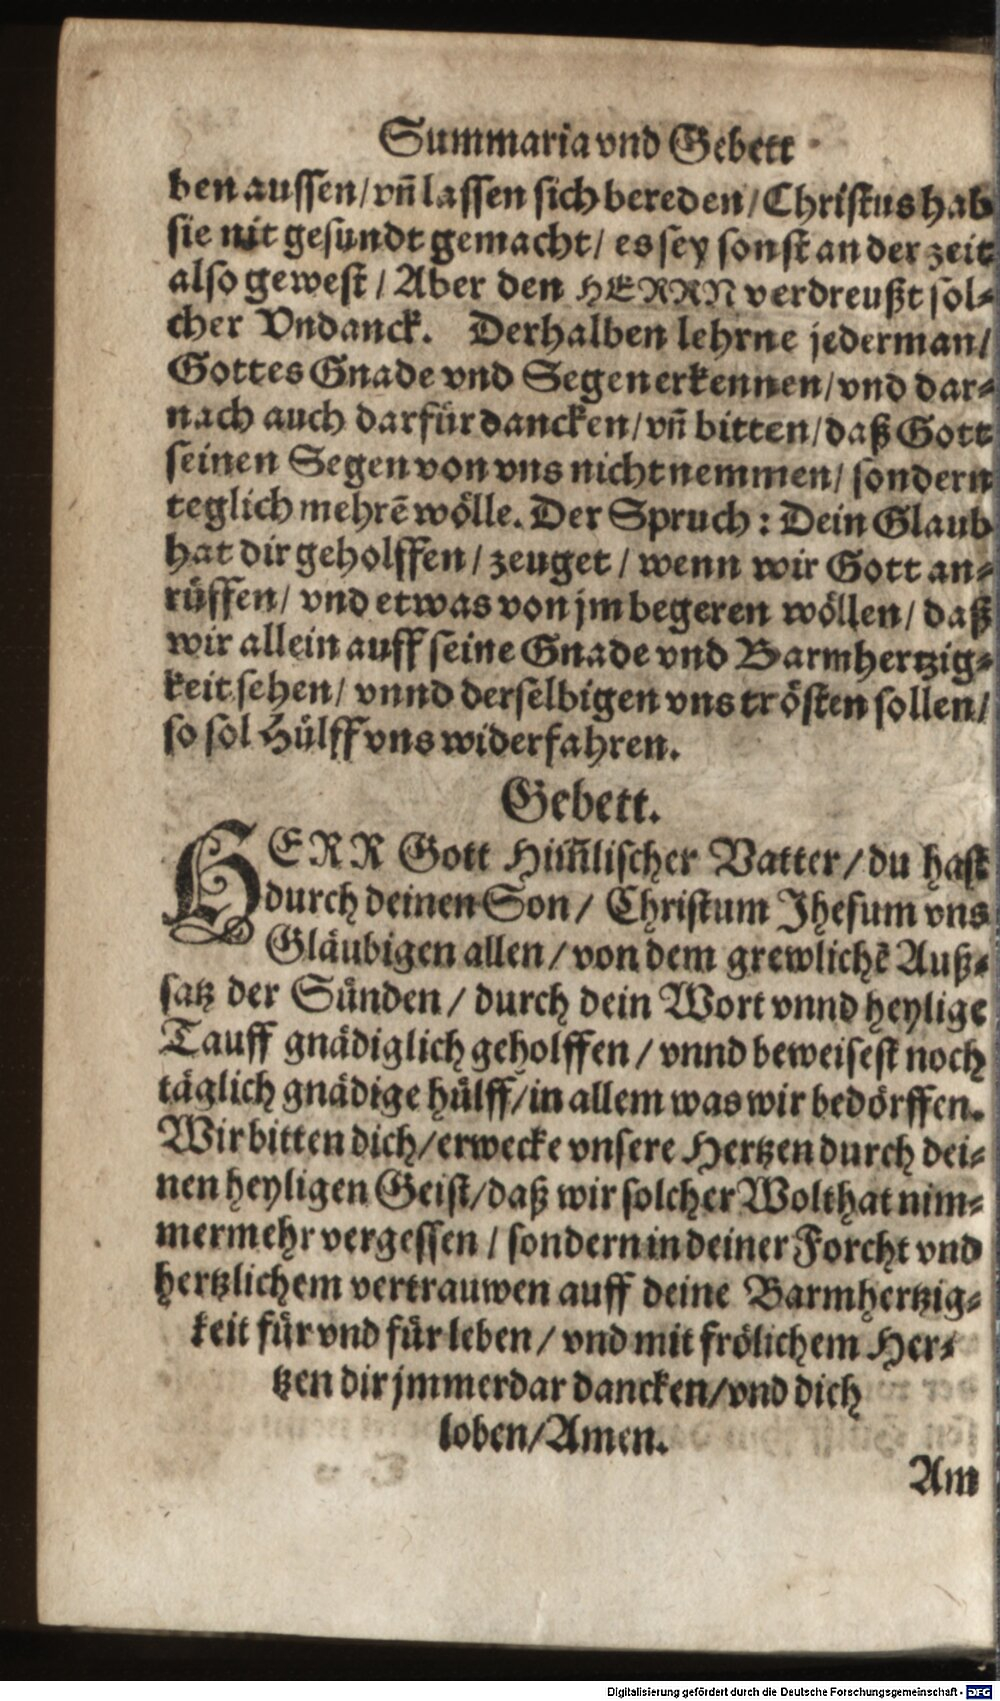 Summaria vnd Gebett
ben aussen/ vñ lassen sich bereden/ Christus hab
sie nit gesundt gemacht/ es sey sonst an der zeit
also gewest/ Aber den HERRN verdreußt sol-
cher Vndanck. Derhalben lehrne jederman/
Gottes Gnade vnd Segen erkennen/ vnd dar-
nach auch darfür dancken/ vñ bitten/ daß Gott
seinen Segen von vns nicht nemmen/ sondern
teglich mehrẽ wölle. Der Spruch: Dein Glaub
hat dir geholffen/ zeuget/ wenn wir Gott an-
rüffen/ vnd etwas von jm begeren wöllen/ daß
wir allein auff seine Gnade vnd Barmhertzig-
keit sehen/ vnnd derselbigen vns trösten sollen/
so sol Hülff vns widerfahren.
Gebett.
HERR Gott Him̃lischer Vatter/ du hast
durch deinen Son/ Christum Jhesum vns
Gläubigen allen/ von dem grewlichẽ Auß-
satz der Sünden/ durch dein Wort vnnd heylige
Tauff gnädiglich geholffen/ vnnd beweisest noch
täglich gnädige hülff/ in allem was wir bedörffen.
Wir bitten dich/ erwecke vnsere Hertzen durch dei-
nen heyligen Geist/ daß wir solcher Wolthat nim-
mermehr vergessen/ sondern in deiner Forcht vnd
hertzlichem vertrauwen auff deine Barmhertzig-
keit für vnd für leben/ vnd mit frölichem Her-
tzen dir jmmerdar dancken/ vnd dich
loben/ Amen.
Am
Digitalisierung gefördert durch die Deutsche Forschungsgemeinschaft - DFG